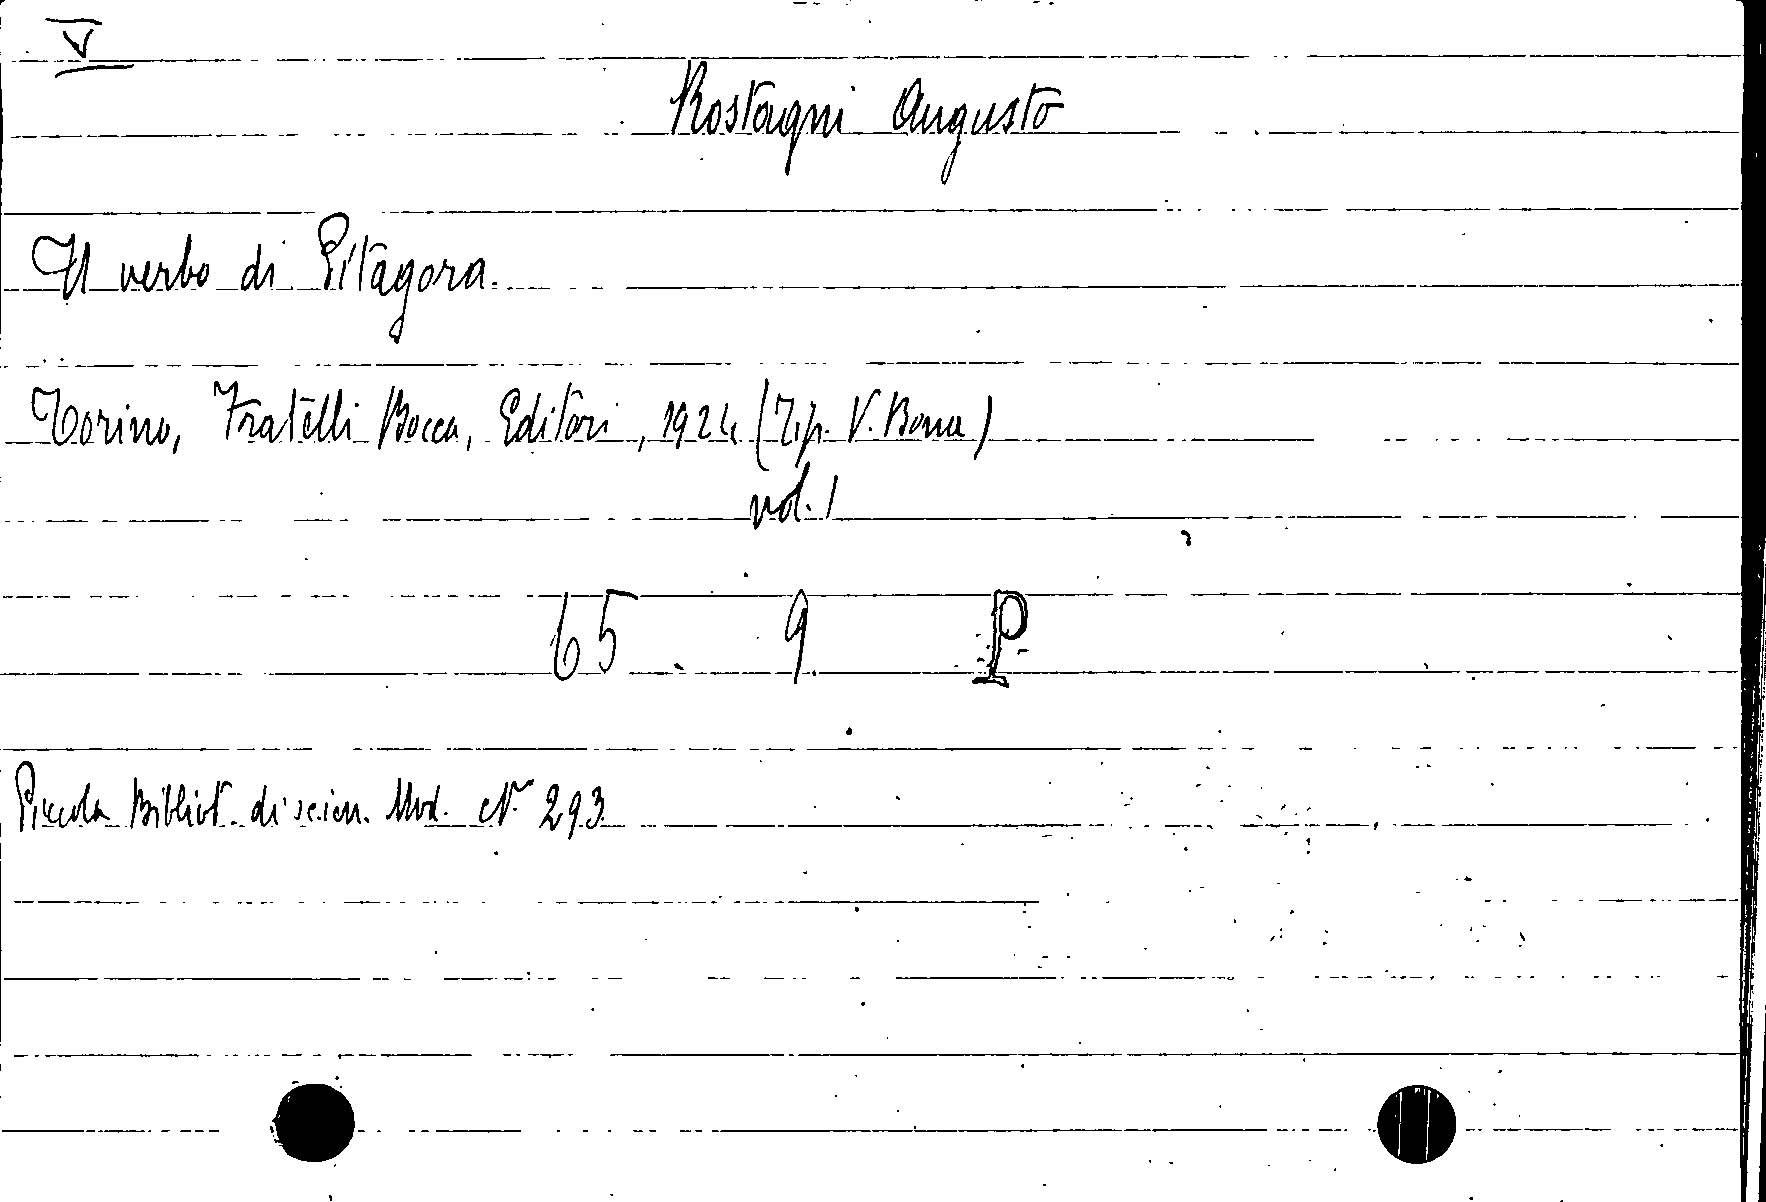 V
Rostagni Augusto
Il verbo di Pitagora.
Torino, Fratelli Bocca, Editori, 1924 (Tip. V. Bona)
vol. 1
65. 9. P
Piccola Bibliot. di scien. Mod. N. 293.